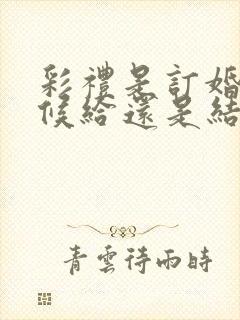 彩禮是訂婚
候給還是結
青雲待雨時